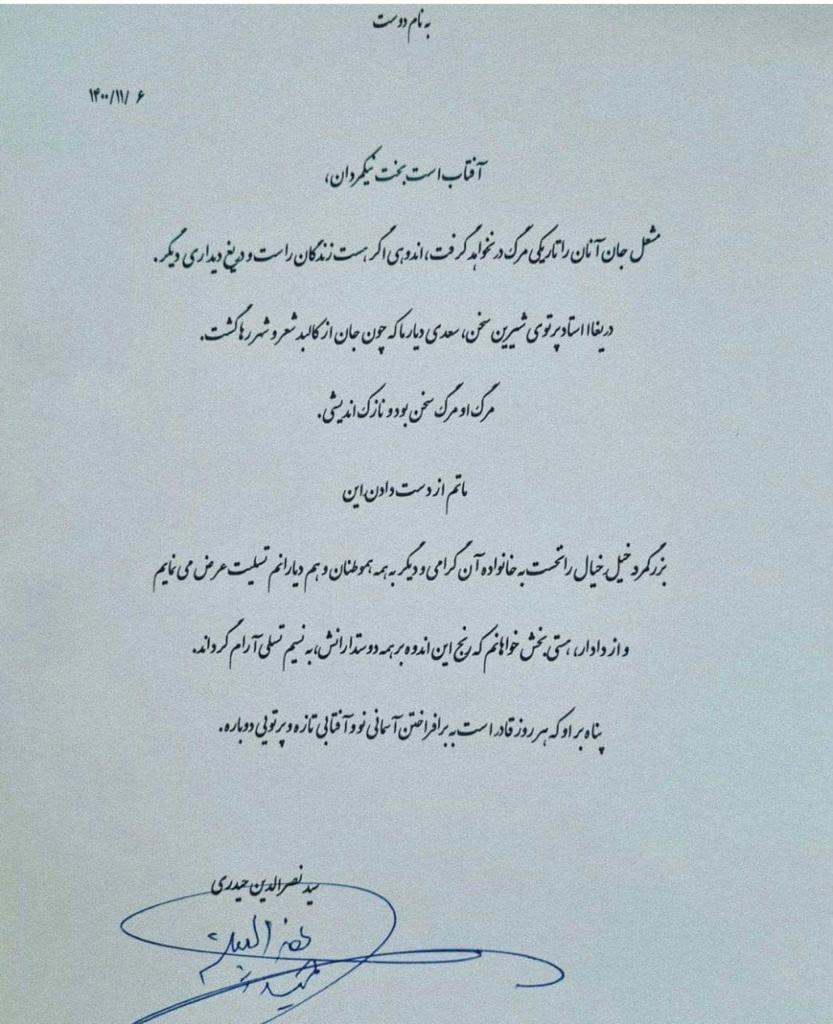 به نام دوست
۱۴۰۰/۱۱/ ۶
آفتاب است بخت نیکمردان،
مشعل جان آنان را تاریکی مرگ در نخواهد گرفت، اندوهی اگر هست زندگان راست و دریغ دیداری دیگر.
دریغا استاد پرتوی شیرین سخن، سعدی دیار ما که چون جان از کالبد شعر و شهر رها گشت.
مرگ او مرگ سخن بود و نازک اندیشی.
ماتم از دست دادن این
بزرگمرد خیل خیال را نخست به خانواده آن گرامی و دیگر به همه هموطنان و هم دیارانم تسلیت عرض می نمایم
و از دادار، هستی بخش خواهانم که رنج این اندوه بر همه دوستدارانش، به نسیم تسلی آرام گرداند.
پناه بر او که هر روز قادر است به برافراختن آسمانی نو و آفتابی تازه و پرتویی دوباره.
سید نصرالدین حیدری